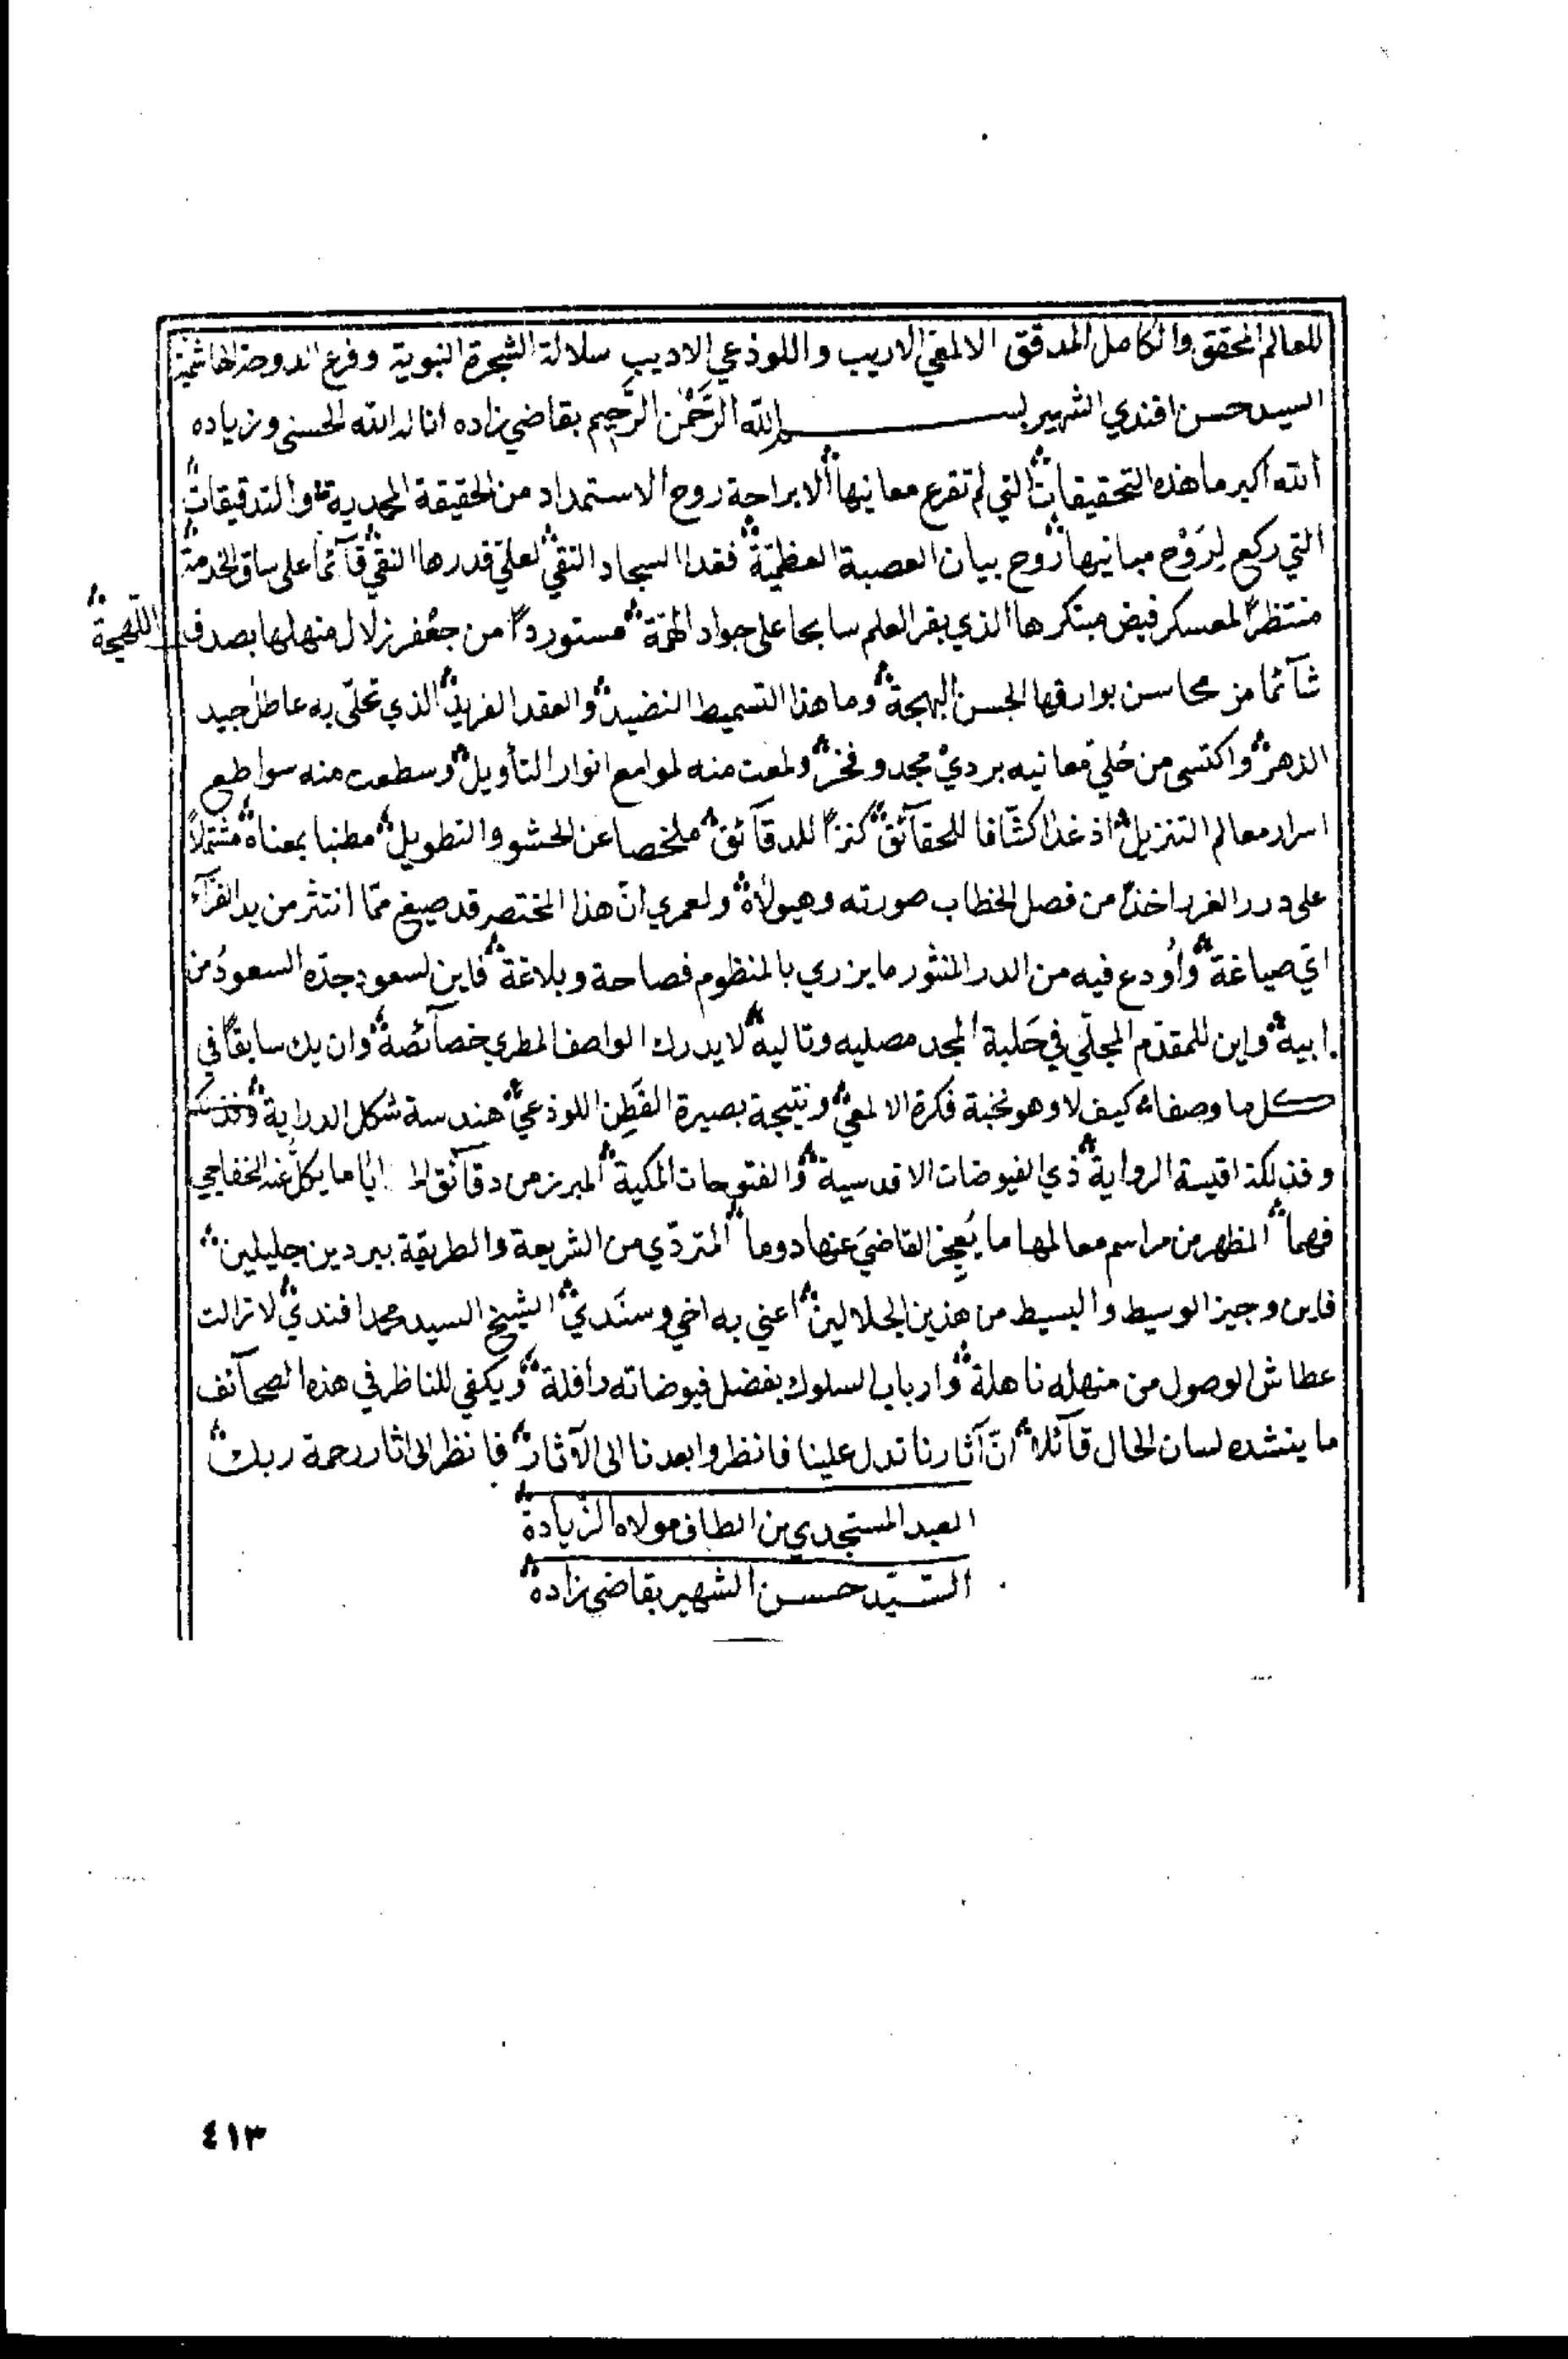 للعالم المحقق والكامل المدقق الالمعي الاريب واللوذعي الاديب سلالة الشجرة النبوية وفرع الدوحة الهاشمية
السيد حسن افندي الشهير بســـــــم الله الرَّحْمٰن الرَّحِيم بقاضي زاده اناله الله الحسنى وزياده
الله اكبر ما هذه التحقيقات التي لم تقرع معانيها الا براحة روح الاستمداد من الحقيقة المحمدية والتدقيقات
التي ركع لِرَوْح مبانيها روح بيان العصبة العظميّة فغدا السجاد التقي لعليّ قدرها النقي قآئمًا على ساق الخدمة
منتظرًا لمعسكر فيض مبتكرها الذي بقر العلم سابحا على جواد الهمّة مستوردًا من جعْفر زلال منهلها بصدف اللّهجة
شآئما من محاسن بوارقها الحسن البهجة وما هذا التسميط النضيد والعقد الفريد الذي تحلّى به عاطل جيد
الدهر واكتسى من حُلي معانيه برديْ مجد وفخر ولمعت منه لوامع انوار التأويل وسطعت منه سواطع
اسرار معالم التنزيل اذ غدا كشّافا للحقآئق كنزًا للدقآئق ملخصا عن الحشو والتطويل مطنبا بمعناه مشتملاً
على درر الغرر اخذًا من فصل الخطاب صورته وهيولاه ولعمري انّ هذا المختصر قد صيغ ممّا انتثر من يد الفرّآء
ايّ صياغة وأُودع فيه من الدر المنثور ما يزري بالمنظوم فصاحة وبلاغة فاين لسعود جدّه السعودُ من
ابيه واين للمقدّم المجلّي في حَلبة المجد مصليه وتاليه لا يدرك الواصف المطري خصآئصه وان يك سابقًا في
كل ما وصفا كيف لا وهو نخبة فكرة الالمعي ونتيجة بصيرة الفَطِن اللوذعيّ هندسة شكل الدراية
وفذلكة اقيسة الرواية ذي الفيوضات الاقدسية والفتوحات المكية المبرز من دقآئق ما يكلُّ عنه الخفاجي
فهما المظهر من مراسم معالمها ما يُعجِز القاضيَ عنها دوما المتردّي من الشريعة والطريقة ببردين جليلين
فاين وجيز الوسيط والبسيط من هذين الجلالين اعني به اخي وسنَدي الشيخ السيد محمد افندي لا زالت
عطاش الوصول من منهله ناهلة وارباب السلوك بفضل فيوضاته رافلة ويكفي للناظر في هذه الصحآئف
ما ينشده لسان الحال قآئلا انّ آثارنا تدل علينا فانظروا بعدنا الى الآثار فانظر الى اثار رحمة ربك
العبد المستجدي من الطاف مولاه الزّيادة
السّيّد حسن الشهير بقاضي زاده
٤١٣